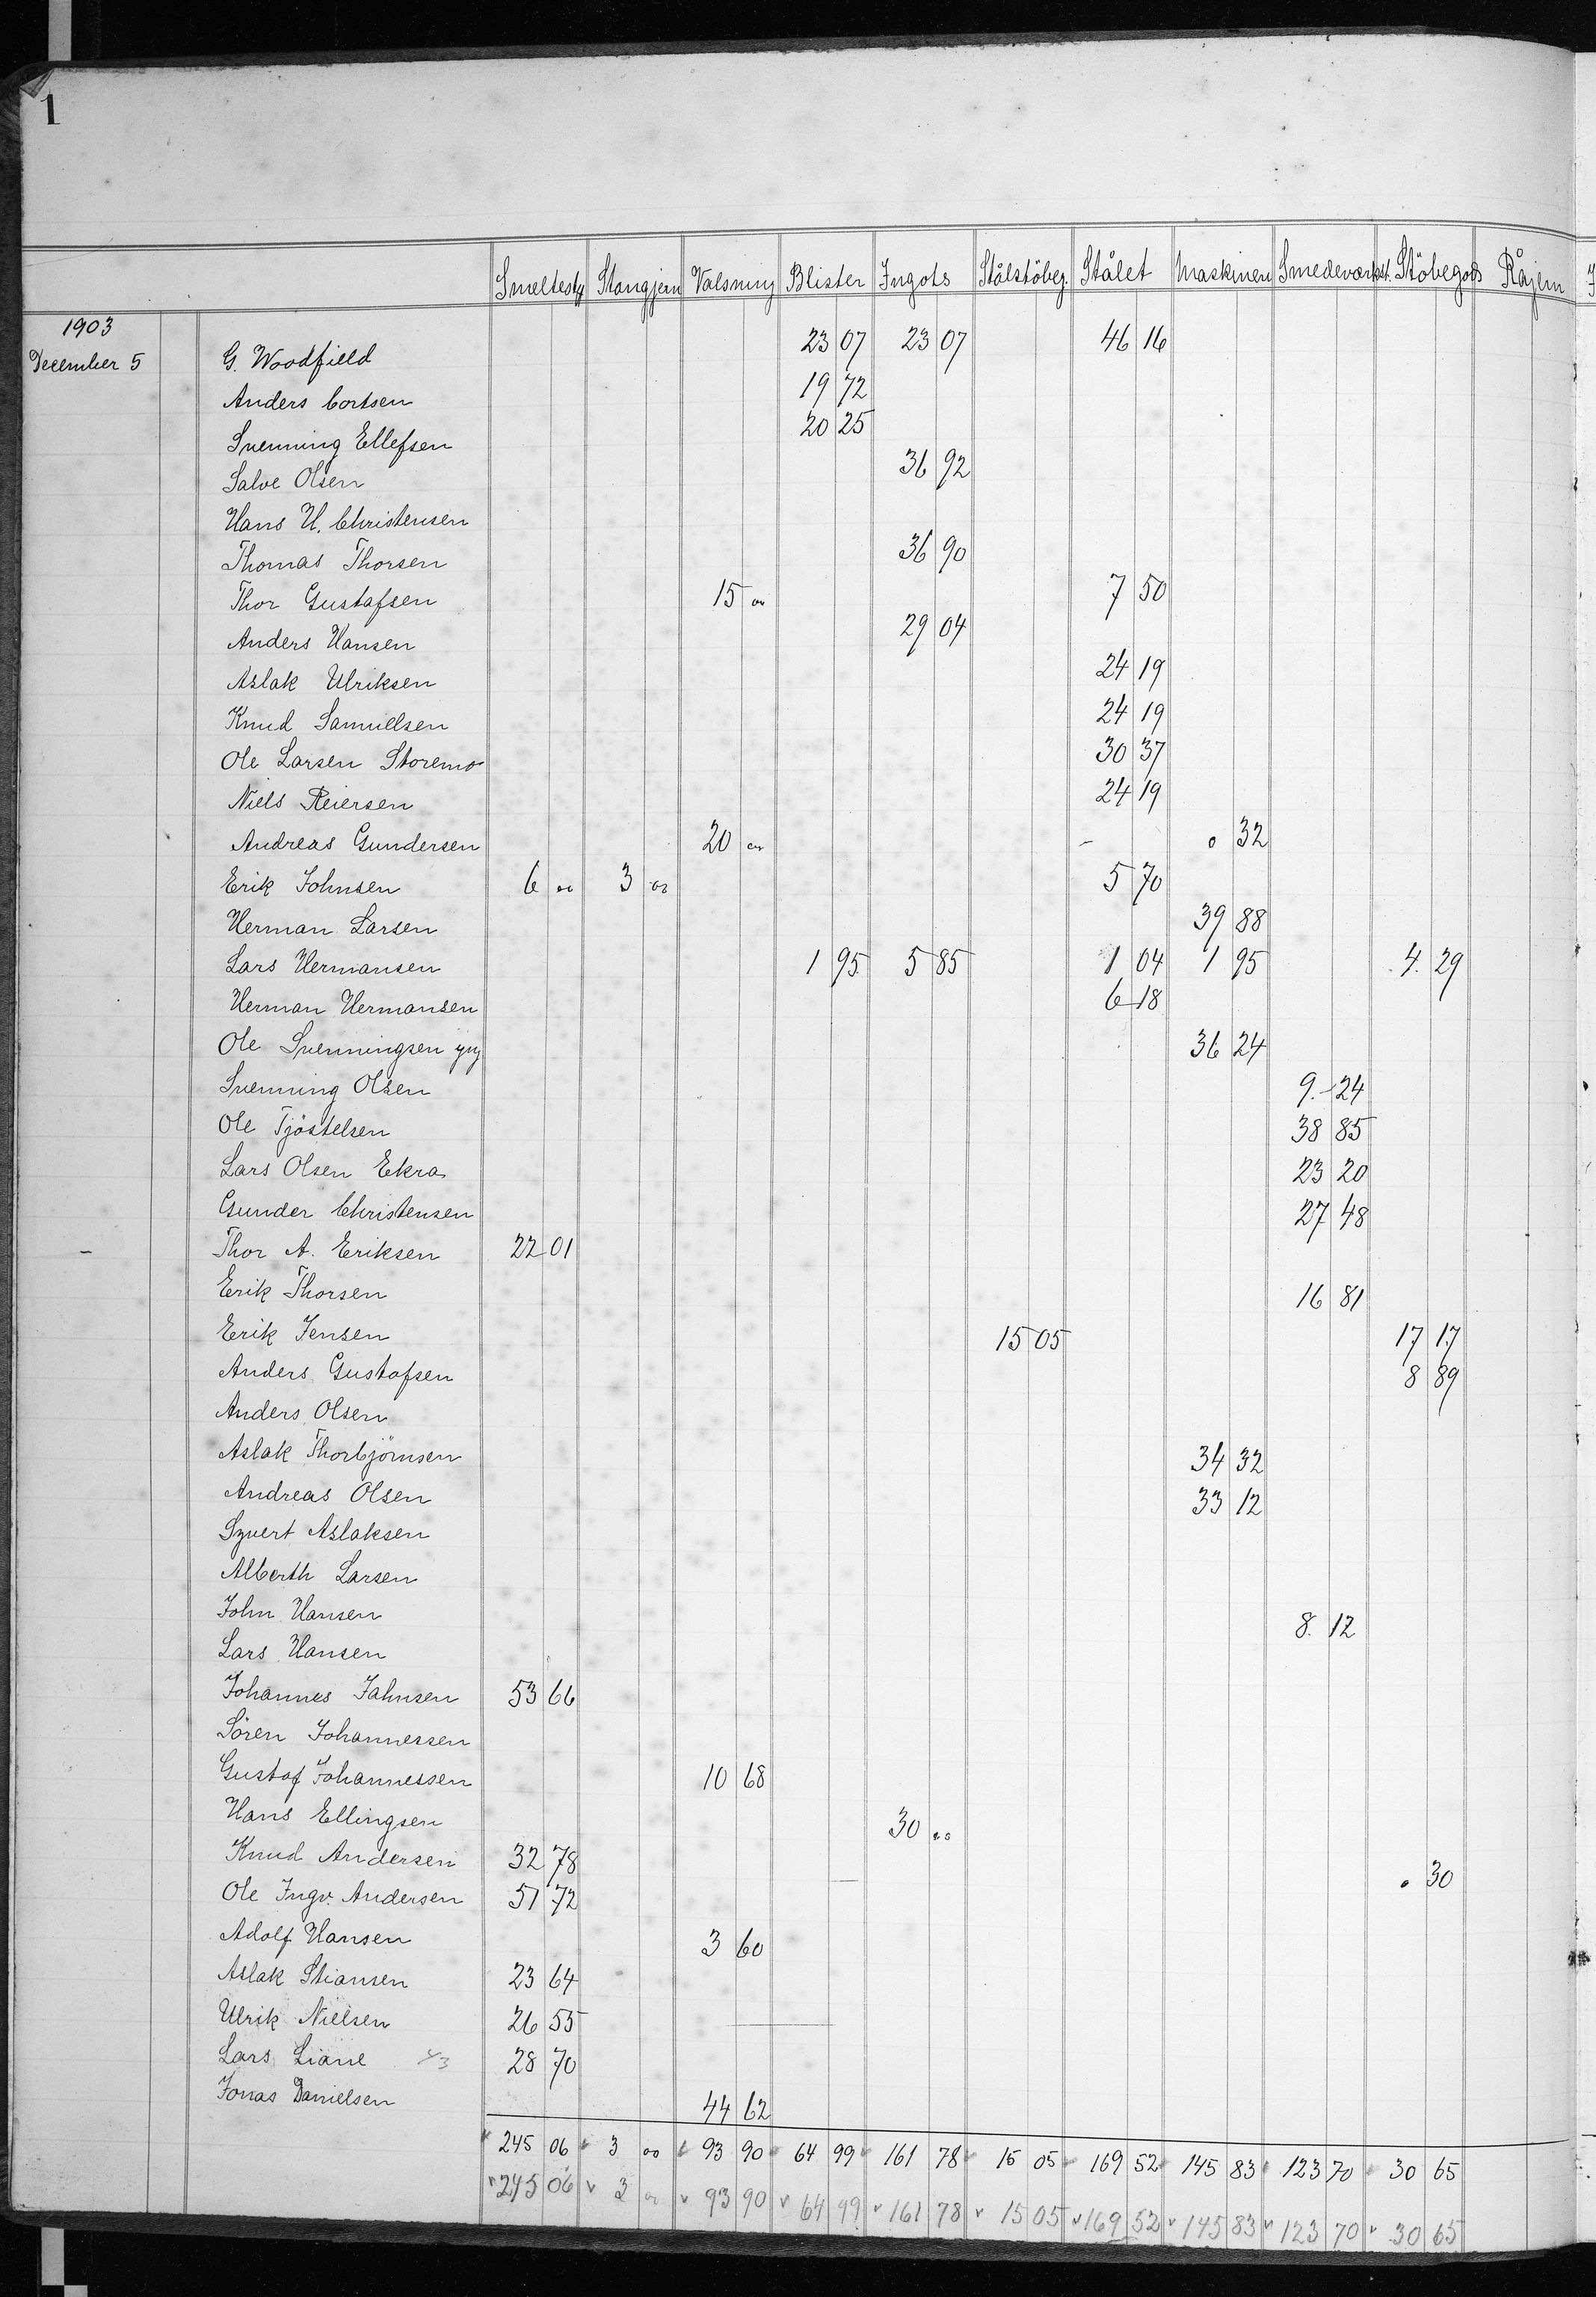 1
Smeltestg Stangjern Valsning Blister Ingots Stålstöbeg. Stålet Maskineri Smedeværkst. Stöbegods Råjern
1903
December 5 G. Woodfield 23 07 23 07 46 16
Anders Cortsen 19 72
Svenning Ellefsen 20 25
Salve Olsen 36 92
Hans H. Christensen
Thomas Thorsen 36 90
Thor Gustafsen 15 00 7 50
Anders Hansen 29 04
Aslak Ulriksen 24 19
Knud Samuelsen 24 19
Ole Larsen Storemo 30 37
Niels Reiersen 24 19
Andreas Gundersen 20 00 - 0 32
Erik Johnsen 6 00 3 00 5 70
Herman Larsen 39 88
Lars Hermansen 1 95 5 85 1 04 1 95 4. 29
Herman Hermansen 6 18
Ole Svenningsen yng 36 24
Svenning Olsen 9. 24
Ole Tjöstelsen 38 85
Lars Olsen Ekra 23 20
Gunder Christensen 27 48
- Thor A. Eriksen 22 01
Erik Thorsen 16 81
Erik Jensen 15 05 17 17
Anders Gustafsen 8 89
Anders Olsen
Aslak Thorbjörnsen 34 32
Andreas Olsen 33 12
Syvert Aslaksen
Alberth Larsen
John Hansen 8. 12
Lars Hansen
Johannes Jahnsen 53 66
Sören Johannessen
Gustaf Johannessen 10 68
Hans Ellingsen 30 00
Knud Andersen 32 78 . 30
Ole Ingv. Andersen 51 72
Adolf Hansen 3 60
Aslak Stiansen 23 64
Ulrik Nielsen 26 55
Lars Liane 43 28 70
Jonas Danielsen 44 62
245 06 3 00 93 90 64 99 161 78 15 05 169 52 145 83 123 70 30 65
245 06 3 00 93 90 64 99 161 78 15 05 169 52 145 83 123 70 30 65